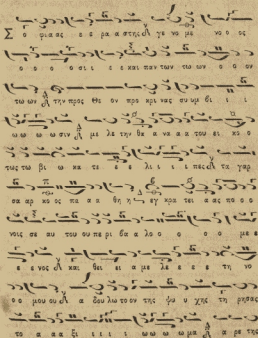 Σο φι ας ε ε ρα α στης γε νο με νο ο ος
ο ο ο ο σι ι ε ε και παν των τω ων ο ο ον
τω ων την προς Θε ον προ κρι νας συ υμ βι ι ι
ω ω ω σιν με λε την θα α να α α του ει κο ο
τως τω βι ω κα τε ε ε λι ι ι πες τα γαρ
σα αρ κος πα σα θη η εγ κρα τει α ας πο ο ο
νοις σε αυ του ου πε ρι βα α λο ο ο ο ο με
ε ε νος και θει ει α με λε ε ε ε τη νο
ο ο μου ου α δου λω το ον της ψυ υ χης τη ρησας
το α α α ξι ι ι ι ι ω ω ω μα α α ρε της